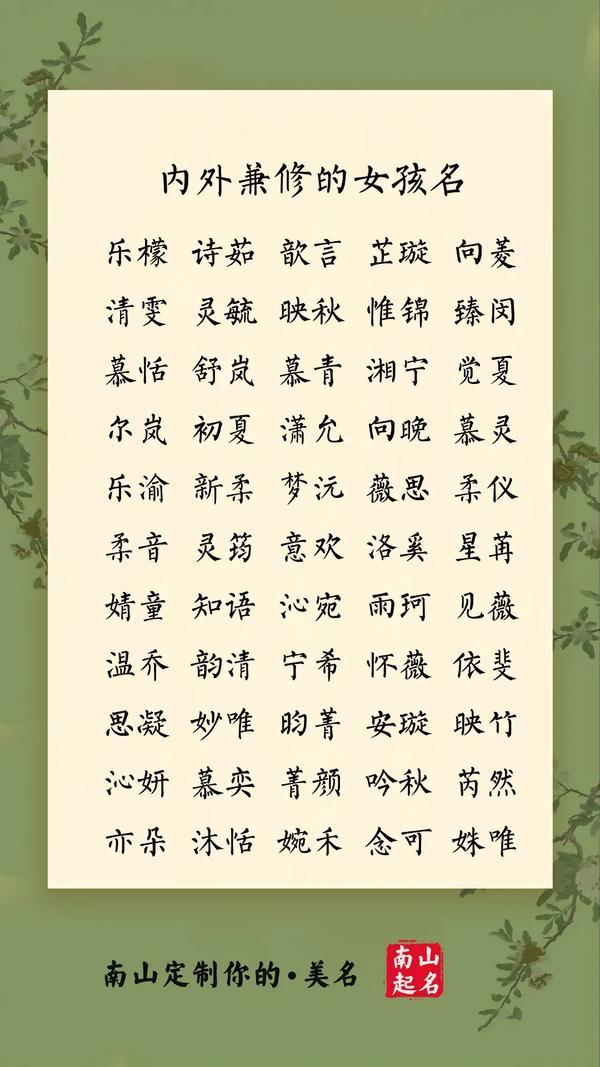 内外兼修的女孩名
乐檬 诗茹 歆言 芷璇 向菱
清雯 灵毓 映秋 惟锦 臻闵
慕恬 舒岚 慕青 湘宁 觉夏
尔岚 初夏 潇允 向晚 慕灵
乐渝 新柔 梦沅 薇思 柔仪
柔音 灵筠 意欢 洛奚 星苒
婧童 知语 沁宛 雨珂 见薇
温乔 韵清 宁希 怀薇 依斐
思凝 妙唯 昀菁 安璇 映竹
沁妍 慕奕 菁颜 吟秋 芮然
亦朵 沐恬 婉禾 念可 姝唯
南山定制你的·美名
南山
起名